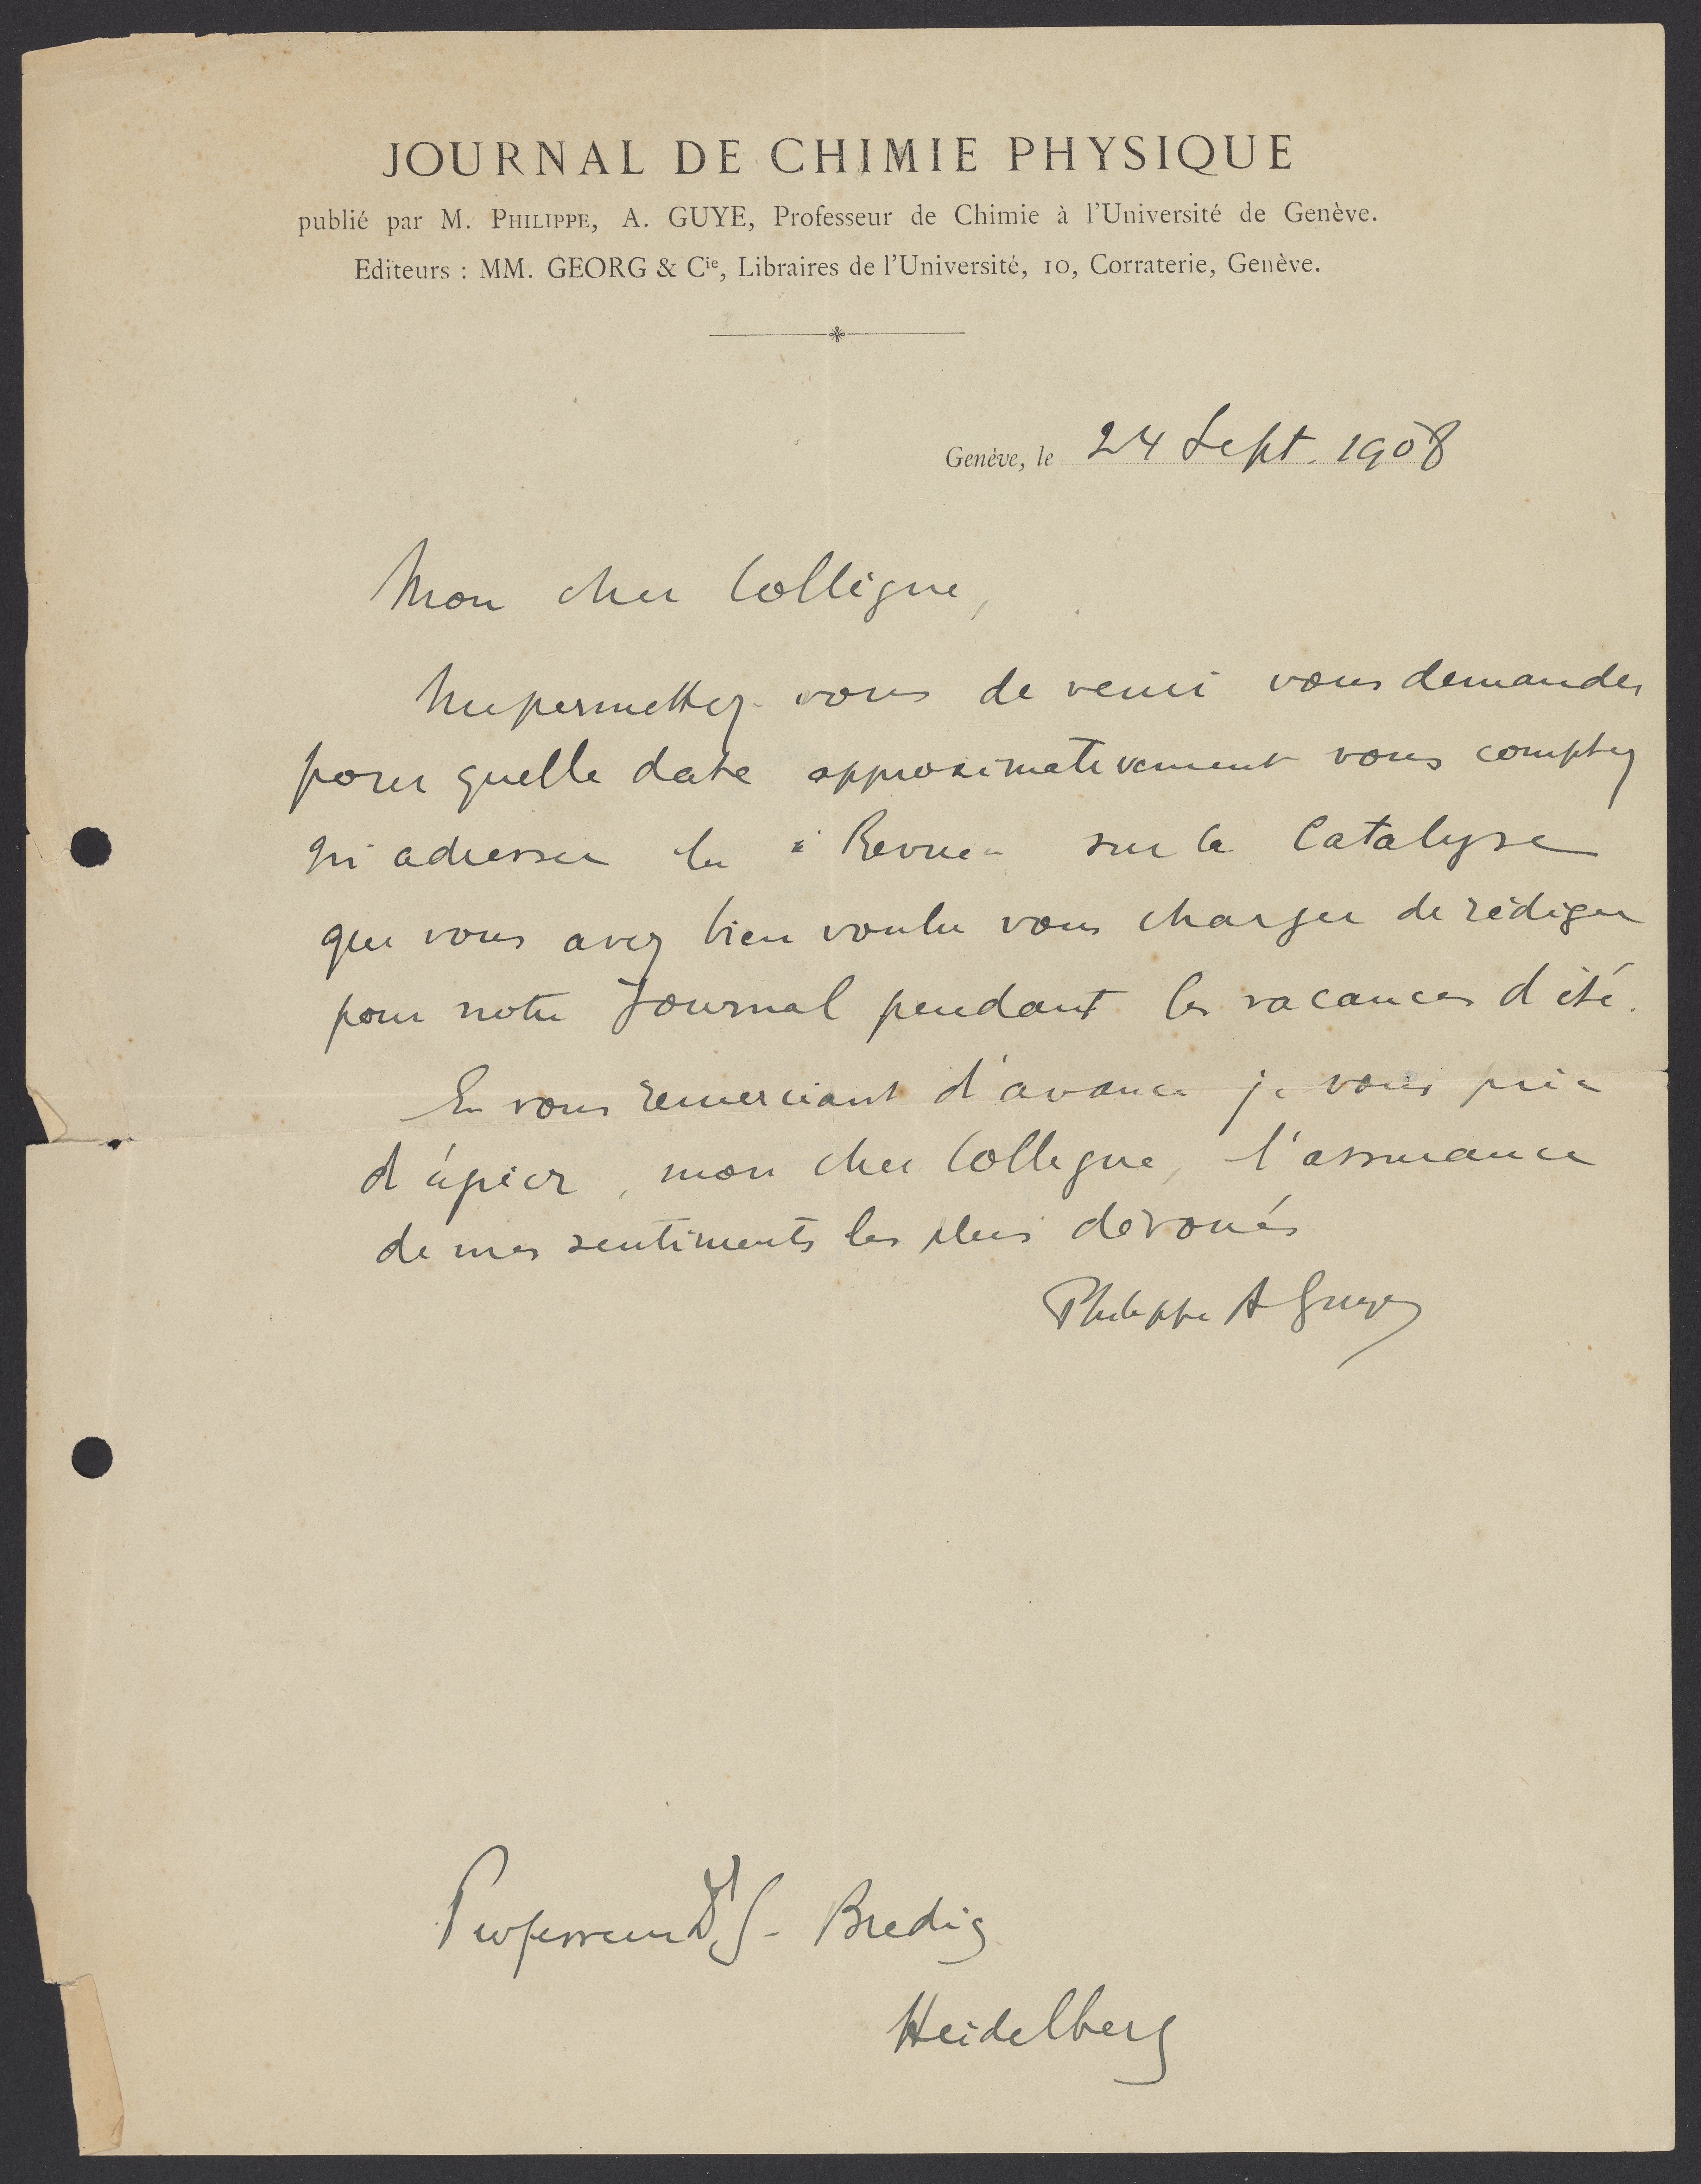 JOURNAL DE CHIMIE PHYSIQUE
publié par M. PHILIPPE, A. GUYE, Professeur de Chimie à l'Université de Genève.
Editeurs : MM. GEORG & Cie, Libraires de l'Université, 10, Corraterie, Genève.
Genève, le 24 Sept. 1908
Mon cher Collègue,
Me permettez-vous de venir vous demander
pour quelle date approximativement vous comptez
m'adresser la « Revue » sur la Catalyse
que vous avez bien voulu vous charger de rédiger
pour notre Journal pendant les vacances d'été.
En vous remerciant d'avance je vous prie
d'agréer, mon cher Collègue, l'assurance
de mes sentiments les plus dévoués
Philippe A Guye
Professeur Dr G. Bredig
Heidelberg